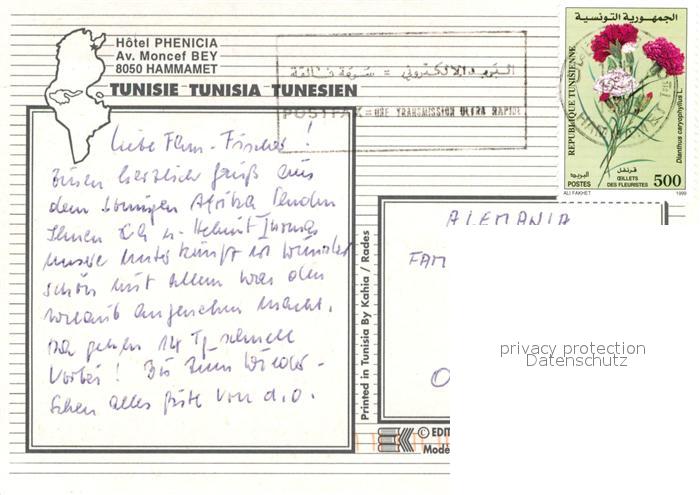 Hôtel PHENICIA
Av. Moncef BEY
8050 HAMMAMET
TUNISIE TUNISIA TUNESIEN
البريد الالكتروني = سرعة فائقة
POSTFAX = UNE TRANSMISSION ULTRA RAPIDE
الجمهورية التونسية
REPUBLIQUE TUNISIENNE
Dianthus caryophyllus L.
قرنفل
البريد
ŒILLETS
POSTES DES FLEURISTES 500
ALI FAKHET 1999
Liebe Fam. Fischer!
Einen herzlichen Gruß aus
dem sonnigen Afrika senden
Ihnen u. Helmut
unsere Unterkunft ist wunder
schön mit allem was den
Urlaub angenehm macht.
Da gehen 14 Tg. schnell
vorbei! Bis zum Wieder-
sehen alles Gute von d.o.
ALEMANIA
FAM
Printed in Tunisia By Kahia / Rades
© EDIT
Modè
privacy protection
Datenschutz